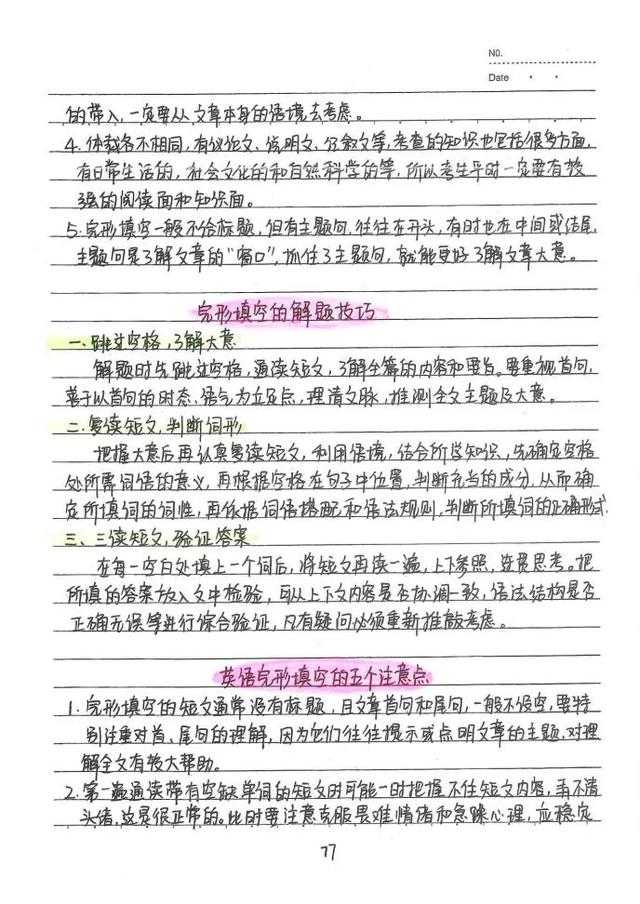 NO.
Date
的带入，一定要从文章本身的语境去考虑。
4. 体裁各不相同，有议论文、说明文、记叙文等，考查的知识也包括很多方面，
有日常生活的，社会文化的和自然科学的等，所以考生平时一定要有较
强的阅读面和知识面。
5. 完形填空一般不给标题，但有主题句，往往在开头，有时也在中间或结尾，
主题句是了解文章的“窗口”，抓住了主题句，就能更好了解文章大意。
完形填空的解题技巧
一、跳过空格，了解大意
解题时先跳过空格，通读短文，了解全篇的内容和要旨。要重视首句，
善于以首句的时态、语气为立足点，理清文脉，推测全文主题及大意。
二、复读短文，判断词形
把握大意后再认真复读短文，利用语境，结合所学知识，先确定空格
处所需词语的意义，再根据空格在句子中位置，判断充当的成分，从而确
定所填词的词性，再依据词语搭配和语法规则，判断所填词的正确形式.
三、三读短文，验证答案
在每一空白处填上一个词后，将短文再读一遍，上下参照，连贯思考。把
所填的答案放入文中检验，可从上下文内容是否协调一致，语法结构是否
正确无误等进行综合验证，凡有疑问必须重新推敲考虑。
英语完形填空的五个注意点
1. 完形填空的短文通常没有标题，且文章首句和尾句，一般不设空，要特
别注重对首、尾句的理解，因为它们往往提示或点明文章的主题，对理
解全文有较大帮助。
2. 第一遍通读带有空缺单词的短文时可能一时把握不住短文内容，弄不清
头绪，这是很正常的。此时要注意克服畏难情绪和急躁心理，应稳定
77